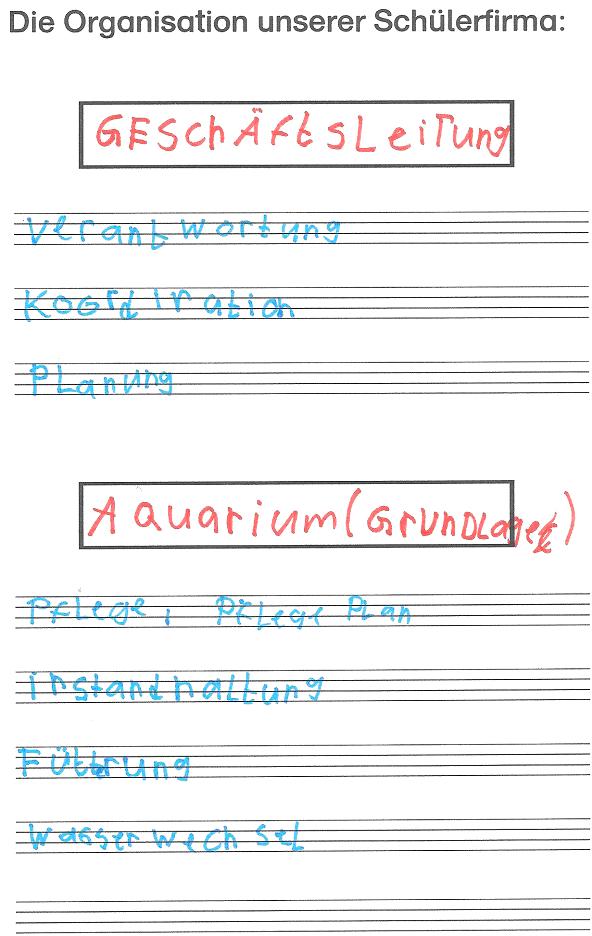 Die Organisation unserer Schülerfirma:
GESchÄftsLeiTung
Verantwortung
Koordination
PLanung
AQuarium (GrUNDLagen)
Pflege, PfLege PLan
instandhaltung
Füttrung
wasserwechseL